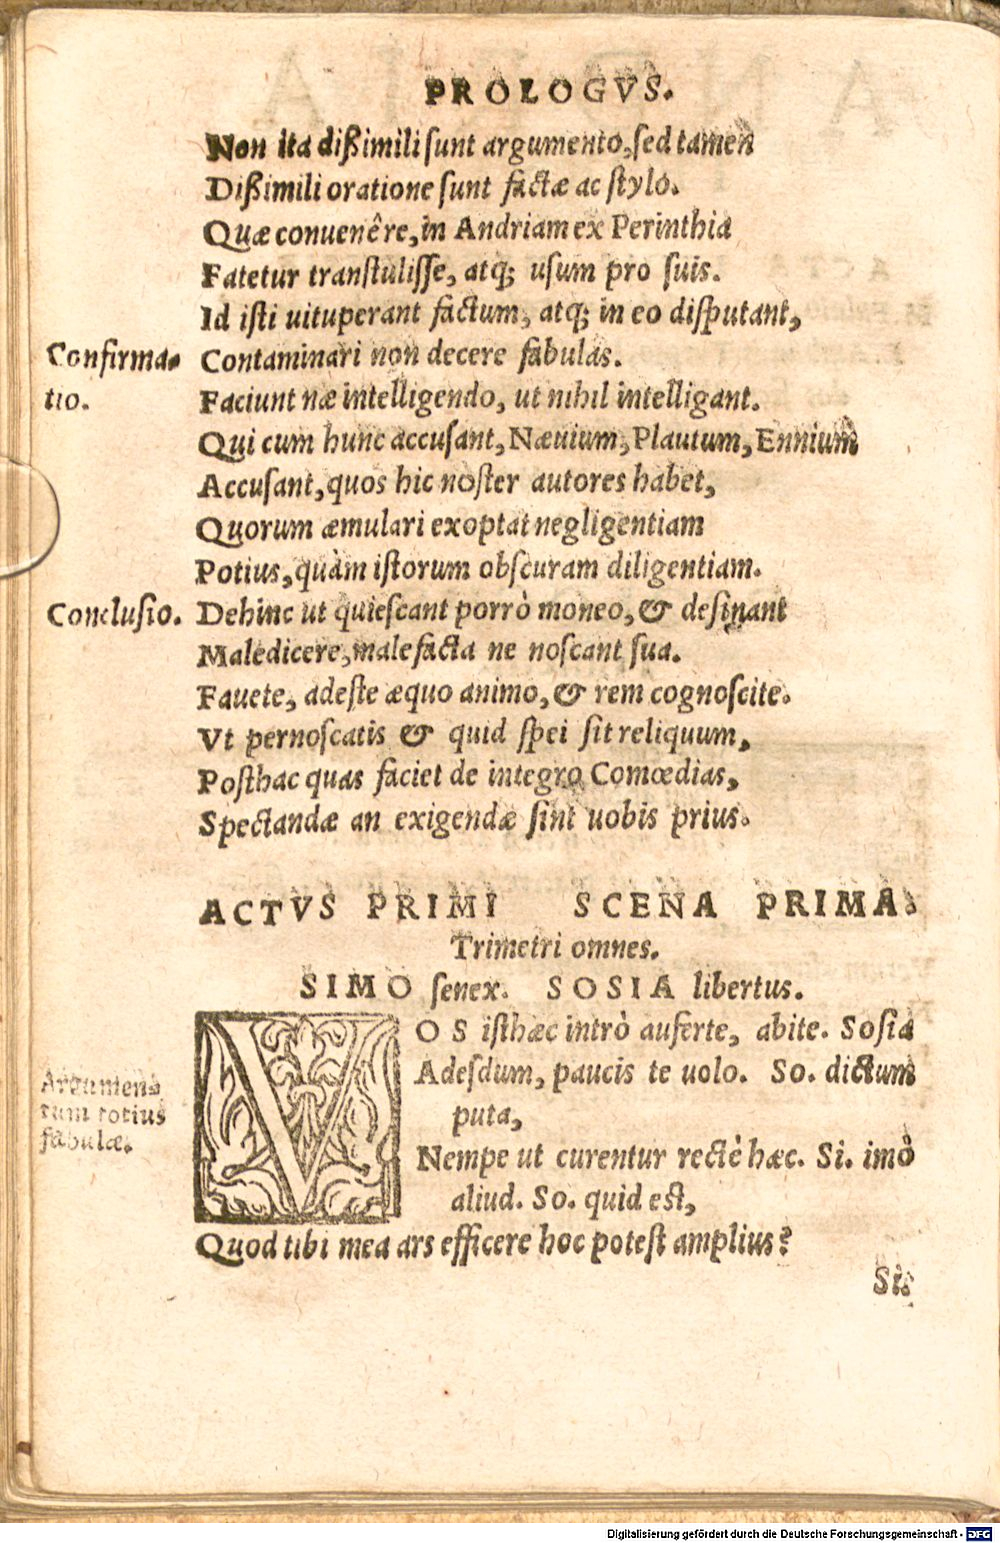 PROLOGVS.
Non ita dißimili sunt argumento, sed tamen
Dißimili oratione sunt factæ ac stylo.
Quæ conuenêre, in Andriam ex Perinthia
Fatetur transtulisse, atq; usum pro suis.
Id isti uituperant factum, atq; in eo disputant,
Confirma-
tio.
Contaminari non decere fabulas.
Faciunt næ intelligendo, ut nihil intelligant.
Qui cum hunc accusant, Næuium, Plautum, Ennium
Accusant, quos hic noster autores habet,
Quorum æmulari exoptat negligentiam
Potius, quàm istorum obscuram diligentiam.
Conclusio.
Dehinc ut quiescant porrò moneo, & desinant
Maledicere, malefacta ne noscant sua.
Fauete, adeste æquo animo, & rem cognoscite.
Vt pernoscatis & quid spei sit reliquum,
Posthac quas faciet de integro Comœdias,
Spectandæ an exigendæ sint uobis prius.
ACTVS PRIMI SCENA PRIMA.
Trimetri omnes.
SIMO senex. SOSIA libertus.
Argumen-
tum totius
fabulæ.
VOS isthæc intrò auferte, abite. Sosia
Adesdum, paucis te uolo. So. dictum
puta,
Nempe ut curentur rectè hæc. Si. imò
aliud. So. quid est,
Quod tibi mea ars efficere hoc potest amplius?
Si.
Digitalisierung gefördert durch die Deutsche Forschungsgemeinschaft - DFG